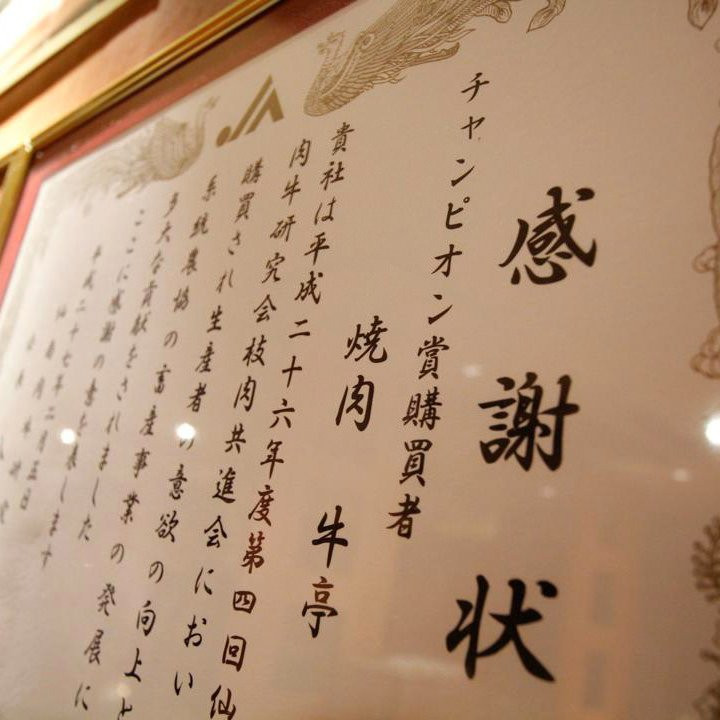 感謝状
チャンピオン賞購買者
焼肉 牛亭
貴社は平成二十六年度第四回仙
肉牛研究会枝肉共進会におい
購買され生産者の意欲の向上と
系統農協の畜産事業の発展に
多大な貢献をされました
ここに感謝の意を表します
平成二十七年二月五日
JA